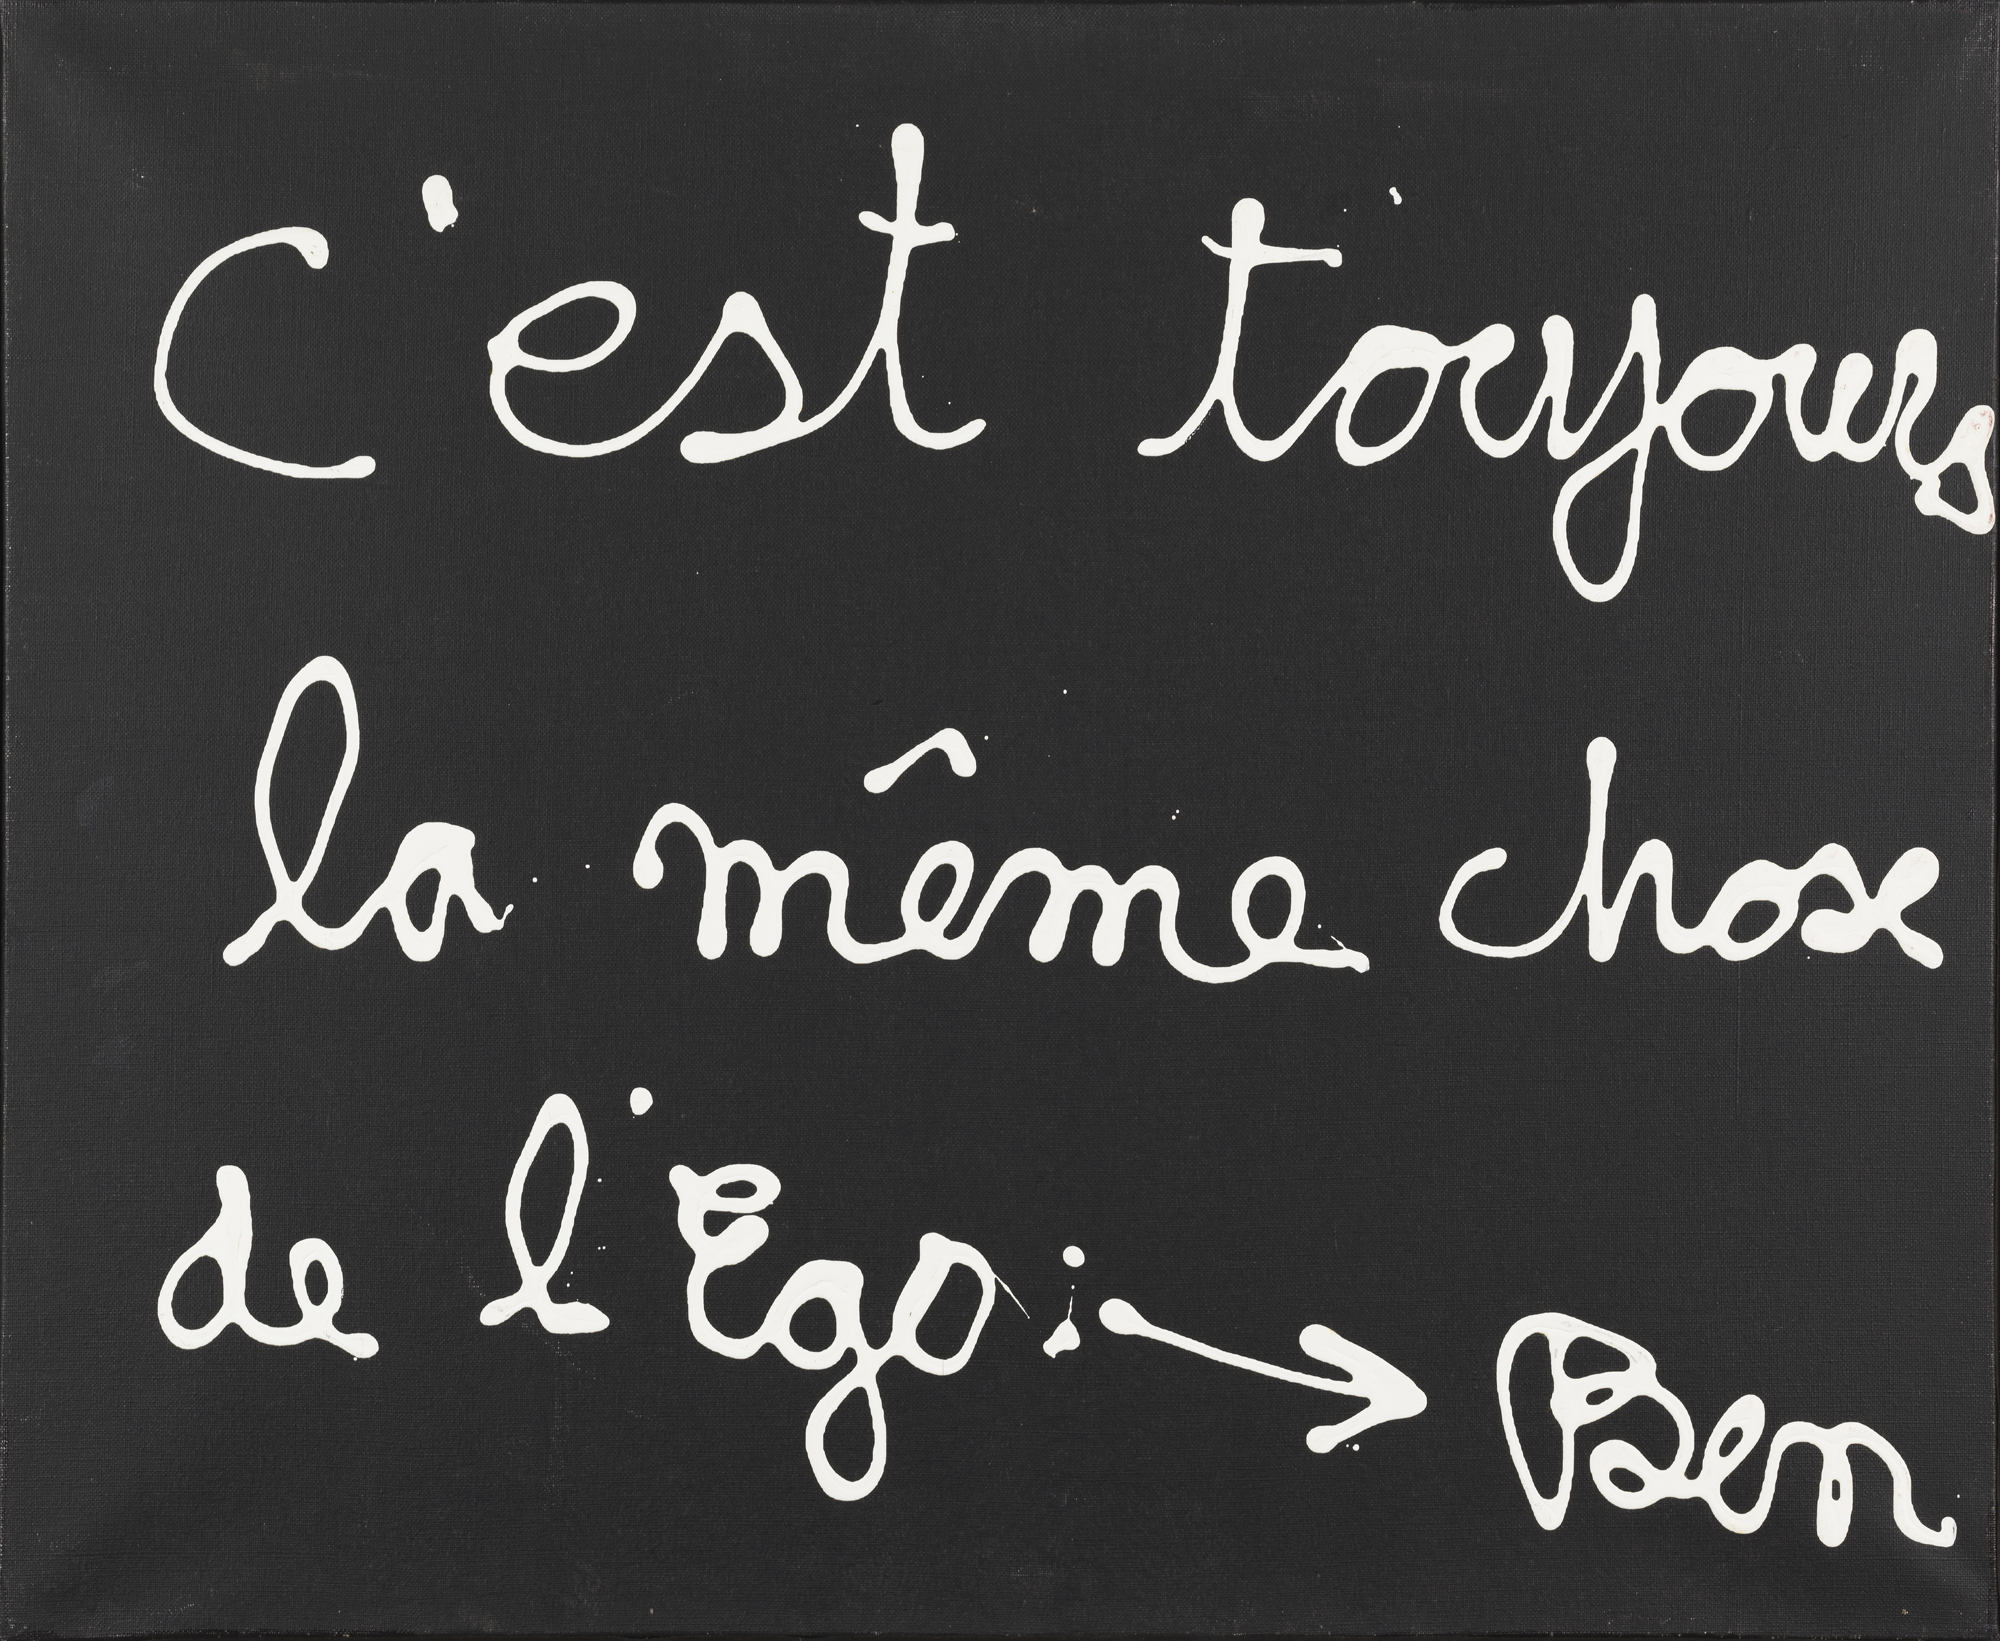 C'est toujours
la même chose
de l'Ego : → Ben